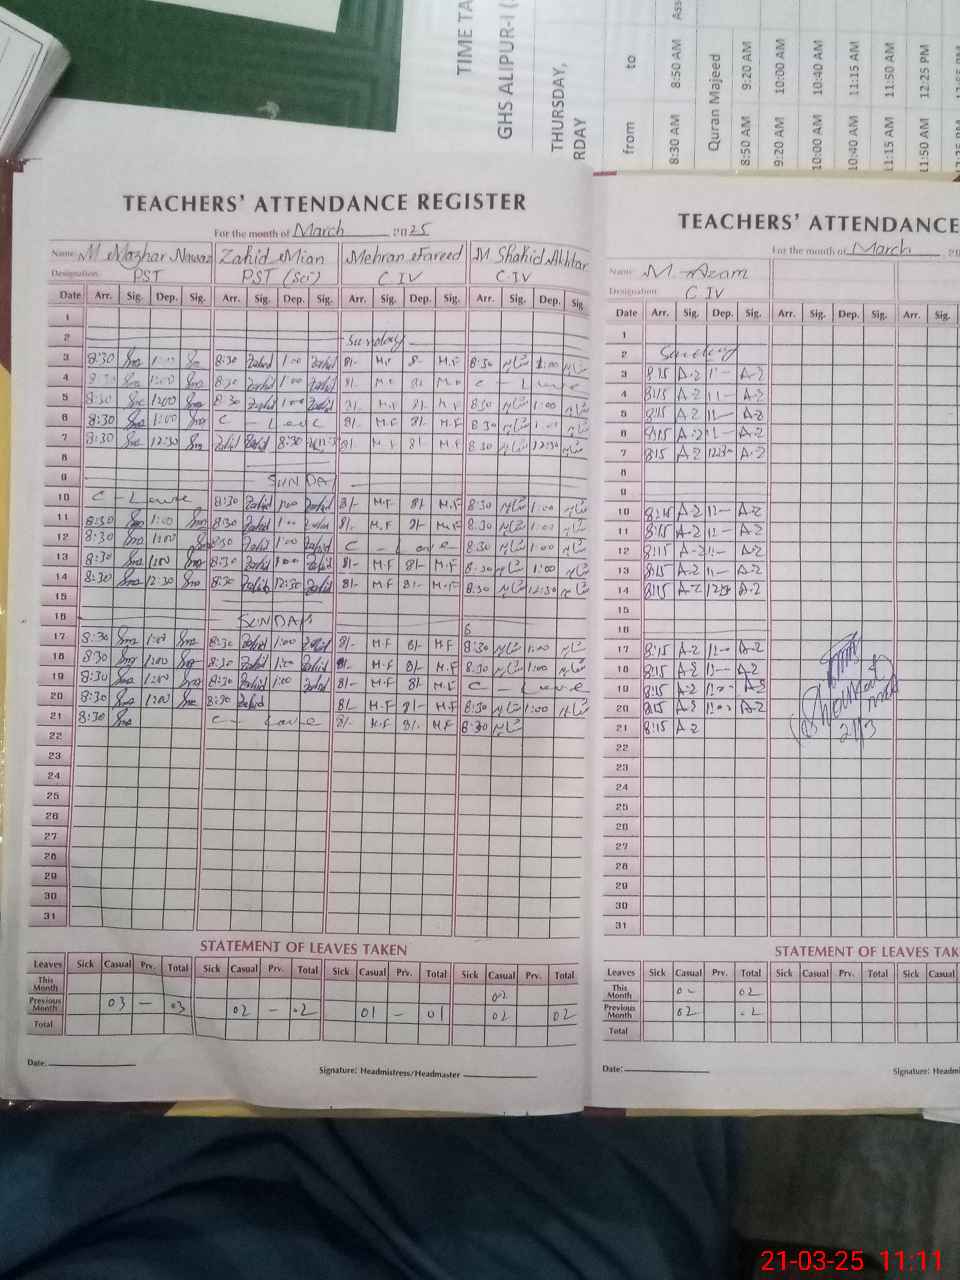 TIME TA
GHS ALIPUR-I (
THURSDAY,
RDAY
from to
8:30 AM 8:50 AM Ass
Quran Majeed
8:50 AM 9:20 AM
9:20 AM 10:00 AM
10:00 AM 10:40 AM
10:40 AM 11:15 AM
11:15 AM 11:50 AM
11:50 AM 12:25 PM
TEACHERS' ATTENDANCE REGISTER
For the month of March 2025
Name M Mazhar Nawaz Zahid Mian Mehran Fareed M Shahid Akhtar
Designation PST PST (Sci) C IV C-IV
Date Arr. Sig. Dep. Sig. Arr. Sig. Dep. Sig. Arr. Sig. Dep. Sig. Arr. Sig. Dep. Sig.
1
2 Sunday
3 8:30 1:00 8:30 Zahid 1:00 Zahid 8/- M.F 8- M.F 8:30 1:00
4 8:30 1:00 8:30 Zahid 1:00 Zahid 8/- M.F 8/- M.F C - Leave
5 8:30 1:00 8:30 Zahid 1:00 Zahid 8/- M.F 8/- M.F 8:30 1:00
6 8:30 1:00 C - Leave 8/- M.F 8/- M.F 8:30 1:00
7 8:30 12:30 Zahid 8:30 8/- M.F 8/- M.F 8:30 12:30
8
9 SUNDAY
10 C - Leave 8:30 Zahid 1:00 Zahid 8/- M.F 8/- M.F 8:30 1:00
11 8:30 1:00 8:30 Zahid 1:00 Zahid 8/- M.F 8/- M.F 8:30 1:00
12 8:30 1:00 8:30 Zahid 1:00 Zahid C - Leave 8:30 1:00
13 8:30 1:00 8:30 Zahid 1:00 Zahid 8/- M.F 8/- M.F 8:30 1:00
14 8:30 12:30 8:30 Zahid 12:30 Zahid 8/- M.F 8/- M.F 8:30 12:30
15
16 SUNDAY
17 8:30 1:00 8:30 Zahid 1:00 Zahid 8/- M.F 8/- M.F 8:30 1:00
18 8:30 1:00 8:30 Zahid 1:00 Zahid 8/- M.F 8/- M.F 8:30 1:00
19 8:30 1:00 8:30 Zahid 1:00 Zahid 8/- M.F 8/- M.F C - Leave
20 8:30 1:00 8:30 Zahid 8/- M.F 8/- M.F 8:30 1:00
21 8:30 C - Leave 8/- M.F 8/- M.F 8:30
22
23
24
25
26
27
28
29
30
31
STATEMENT OF LEAVES TAKEN
Leaves Sick Casual Prv. Total Sick Casual Prv. Total Sick Casual Prv. Total Sick Casual Prv. Total
This Month 02
Previous Month 03 - 03 02 - 02 01 - 01 02 02
Total
Date:
Signature: Headmistress/Headmaster
TEACHERS' ATTENDANCE
For the month of March 20
Name M. Azam
Designation C IV
Date Arr. Sig. Dep. Sig. Arr. Sig. Dep. Sig. Arr. Sig.
1
2 Sunday
3 8:15 A-Z A-Z
4 8:15 A-Z A-Z
5 8:15 A-Z A-Z
6 8:15 A-Z A-Z
7 8:15 A-Z 12:30 A-Z
8
9
10 8:15 A-Z A-Z
11 8:15 A-Z A-Z
12 8:15 A-Z A-Z
13 8:15 A-Z A-Z
14 8:15 A-Z A-Z
15
16
17 8:15 A-Z A-Z
18 8:15 A-Z A-Z
19 8:15 A-Z A-Z
20 8:15 A-Z A-Z
21 8:15 A-Z
21/3
22
23
24
25
26
27
28
29
30
31
STATEMENT OF LEAVES TAK
Leaves Sick Casual Prv. Total Sick Casual Prv. Total Sick Casual
This Month 02
Previous Month 02
Total
Date:
Signature: Headmi
21-03-25 11:11